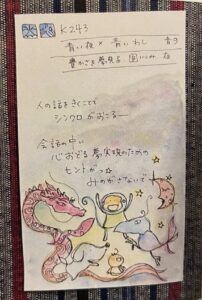 K243
青い夜 × 青いわし 音9
豊かさを夢見る
人の話をきくことで
シンクロがおこるー
会話の中に
心おどる夢実現のための
ヒントがっ☆
みのがさないでー